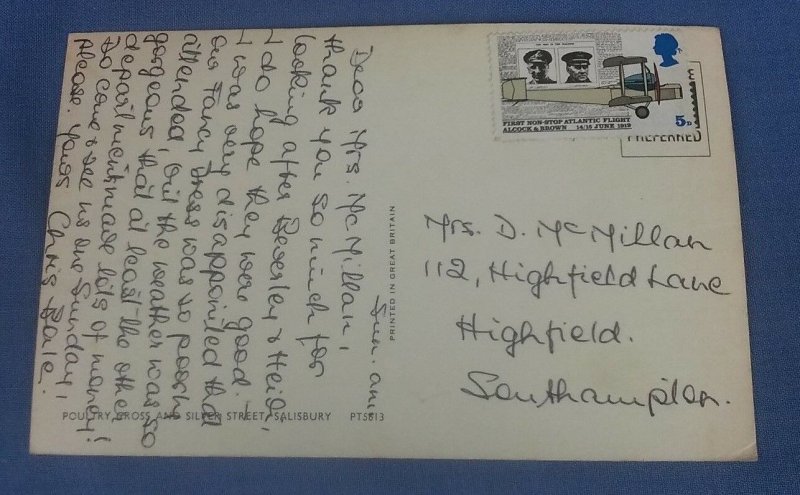 Sun. am.
Dear Mrs. McMillan,
thank you so much for
looking after Beverley & Heidi,
I do hope they were good.
I was very disappointed that
our Fancy Dress was so poorly
attended, but the weather was so
gorgeous that at least the other
department made lots of money!
Do come & see us one Sunday,
please. Yours Chris
PRINTED IN GREAT BRITAIN
POULTRY CROSS AND SILVER STREET, SALISBURY PT5813
FIRST NON-STOP ATLANTIC FLIGHT
ALCOCK & BROWN 14/15 JUNE 1919
5D
PREFERRED
Mrs. D. McMillan
112, Highfield Lane
Highfield.
Southampton.